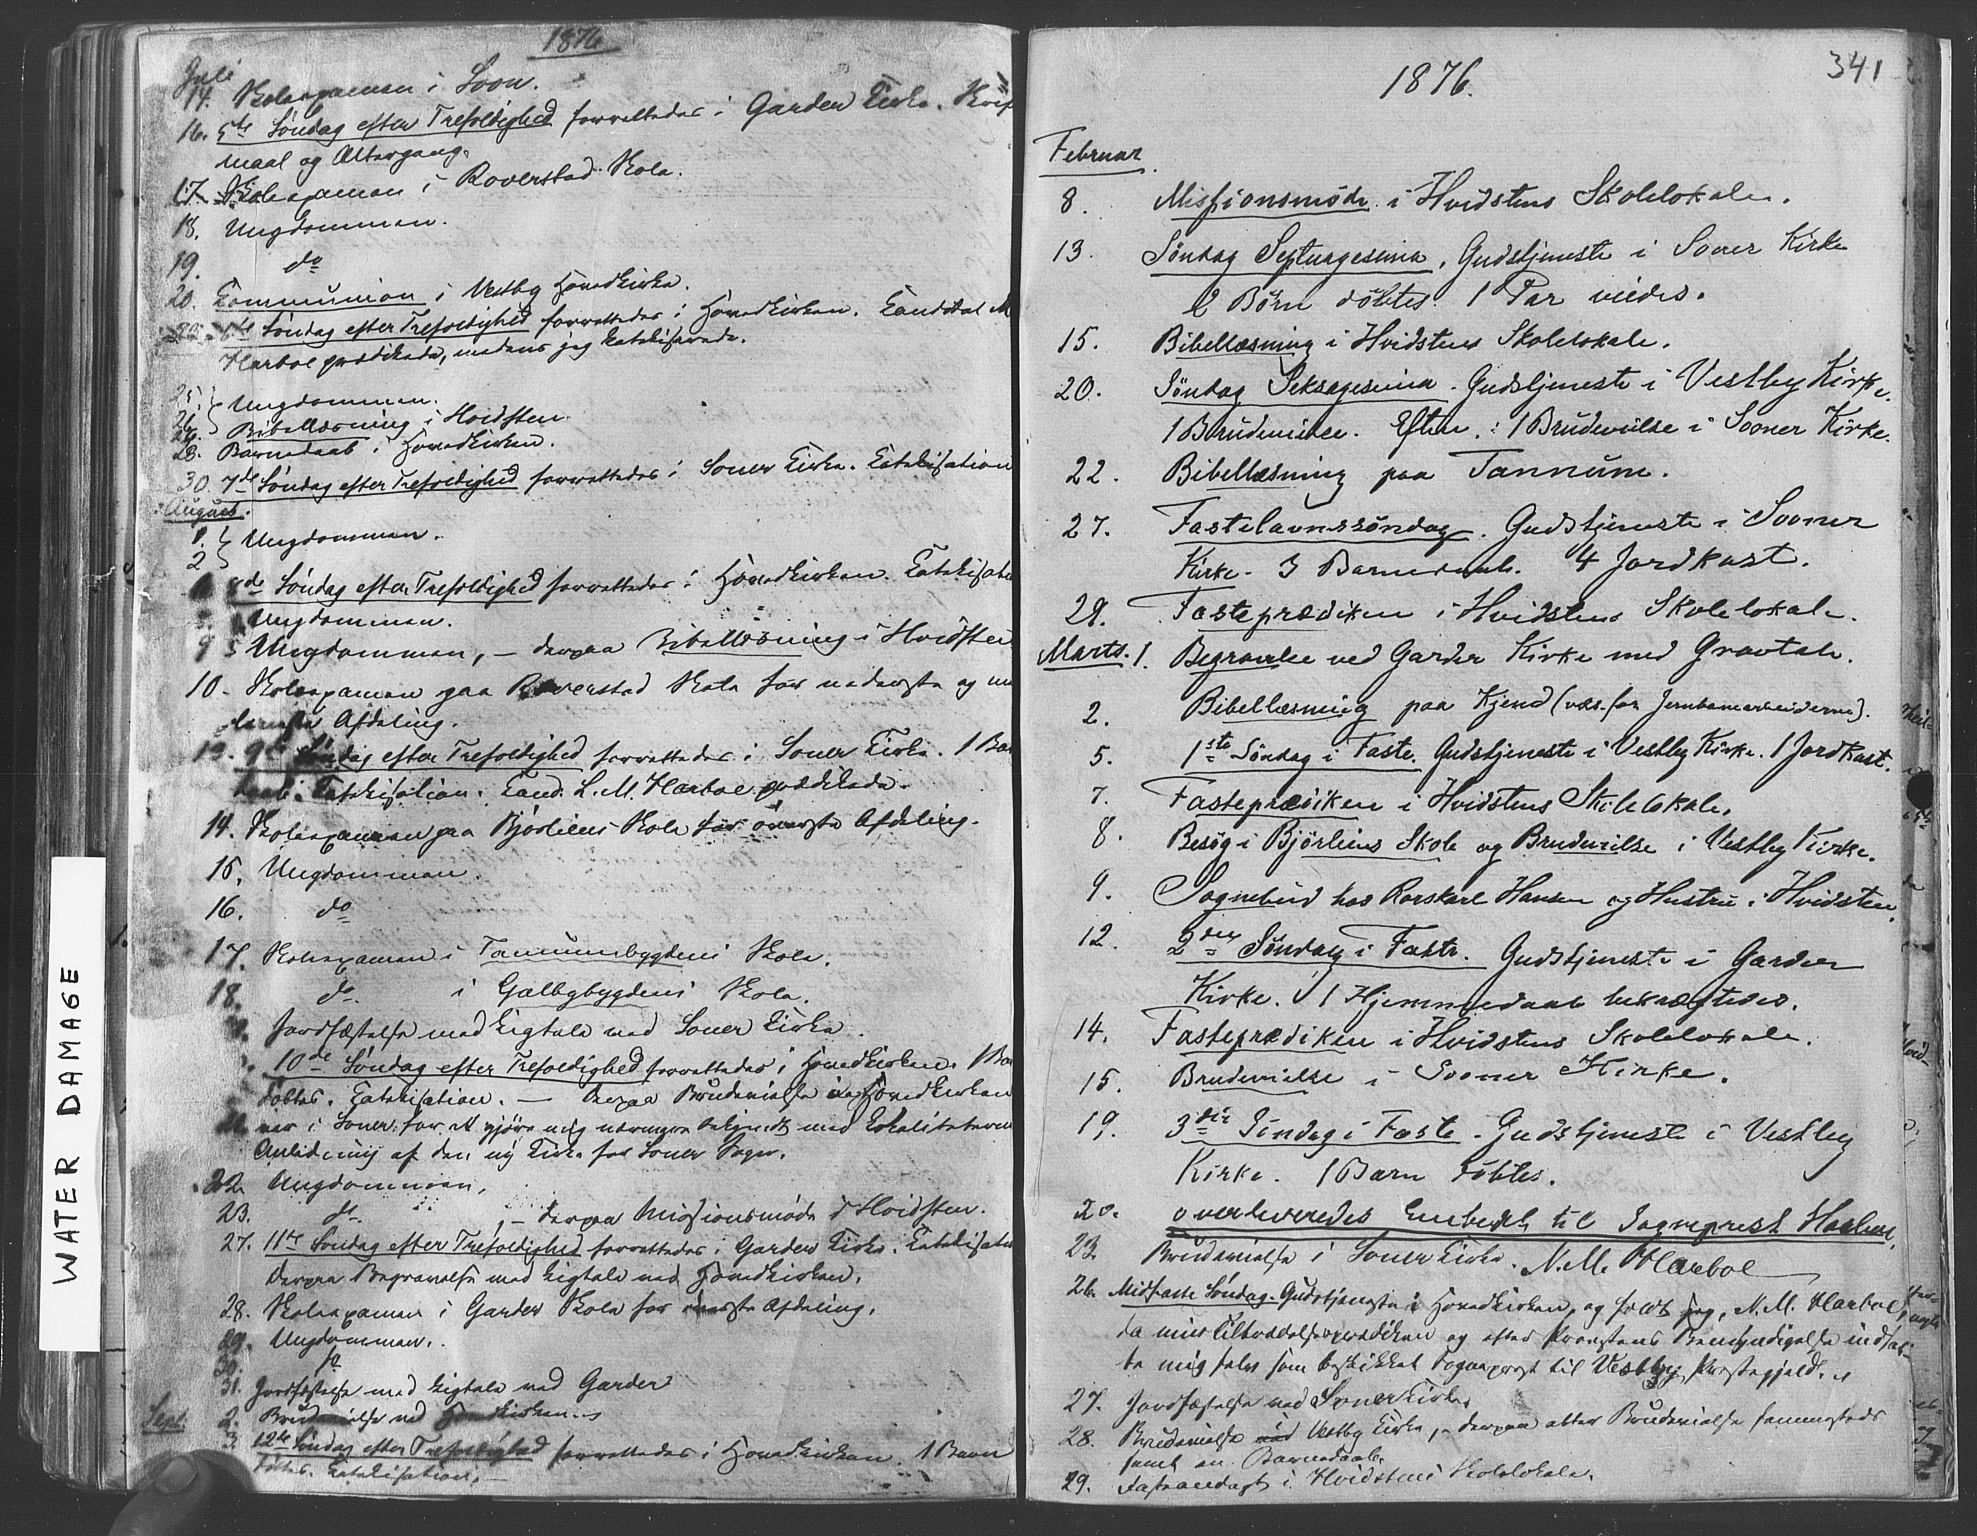 1876
Juli
14. Skoleexamen i Soon.
16. 5te Søndag efter Trefoldighed forrettedes i Garder Kirke. Skrif
maal og Altergang.
17. Skoleexamen i Roverstad Skole.
18. Ungdommen.
19. do
20. Communion i Vestby Hovedkirke.
6te Søndag efter Trefoldighed forrettedes i Hovedkirken. Candidat M
Harboe prædikede, medens jeg katekiserede.
25. } Ungdommen.
26. Bibellæsning i Hvidsten
28. Barnedaab i Hovedkirken.
30. 7de Søndag efter Trefoldighed forrettedes i Soner Kirke. Katekisation
August.
1. } Ungdommen.
2
8de Søndag efter Trefoldighed forrettedes i Hovedkirken. Katekisatio
Ungdommen.
9 Ungdommen, – derpaa Bibellæsning i Hvidsten
10. Skoleexamen paa Roverstad Skole for nederste og me
lemste Afdeling.
13. 9de Søndag efter Trefoldighed forrettedes i Soner Kirke. 1 Bar
daab. Katekisation. Cand. L. M. Harboe prædikede.
14. Skoleexamen paa Bjørliens Skole for øverste Afdeling.
15. Ungdommen.
16. do
17. Skoleexamen i Tannumbygdens Skole.
18. do i Galbybygdens Skole.
Jordfæstelse med Ligtale ved Soner Kirke.
10de Søndag efter Trefoldighed forrettedes i Hovedkirken. 1 Bar
døbtes. Katekisation. – Derpaa Brudevielse i Hovedkirken
21. var i Soner for at gjøre mig nærmere bekjendt med Lokaliteterne
Anledning af den ny Kirke for Soner Sogn.
22. Ungdommen.
23. do, – derpaa Missionsmøde i Hvidsten.
27. 11te Søndag efter Trefoldighed forrettedes i Garder Kirke. Katekisatio
Derpaa Begravelse med Ligtale ved Hovedkirken.
28. Skoleexamen i Garder Skole for øverste Afdeling.
29. Ungdommen.
30. do
31. Jordfæstelse med Ligtale ved Garder
Sept. 2. Brudevielse ved Hovedkirken.
3. 12te Søndag efter Trefoldighed forrettedes i Hovedkirken. 1 Barn
døbtes. Katekisation. –
WATER DAMAGE
341
1876.
Februar.
8. Missionsmøde i Hvidstens Skolelokale.
13. Søndag Septuagesima. Gudstjeneste i Sooner Kirke
2 Børn døbtes. 1 Par viedes.
15. Bibellæsning i Hvidstens Skolelokale.
20. Søndag Seksagesima. Gudstjeneste i Vestby Kirke.
1 Brudevielse. Efterm.: 1 Brudevielse i Sooner Kirke.
22. Bibellæsning paa Tannum.
27. Fastelavnssøndag. Gudstjeneste i Sooner
Kirke. 3 Barnedaab. 4 Jordkast.
29. Fasteprædiken i Hvidstens Skolelokale.
Marts. 1. Begravelse ved Garder Kirke med Gravtale.
2. Bibellæsning paa Kjend (væs. for Jernbanearbeiderne).
5. 1ste Søndag i Faste. Gudstjeneste i Vestby Kirke. 1 Jordkast.
7. Fasteprædiken i Hvidstens Skolelokale.
8. Besøg i Bjørliens Skole og Brudevielse i Vestby Kirke.
9. Sognebud hos Rorskarl Hansen og Hustru i Hvidsten.
12. 2den Søndag i Faste. Gudstjeneste i Garder
Kirke. 1 Hjemmedaab bekræftedes.
14. Fasteprædiken i Hvidstens Skolelokale.
15. Brudevielse i Sooner Kirke.
19. 3die Søndag i Faste. Gudstjeneste i Vestby
Kirke. 1 Barn døbtes.
20. Overleveredes Embedet til Sogneprest Harboe.
23. Brudevielse i Soner Kirke. N. M. Harboe
26. Midfaste Søndag. Gudstjeneste i Hovedkirken, og holdt jeg, N. M. Harboe,
da min Tiltrædelsesprædiken og efter Provstens Bemyndigelse indsat-
te mig selv som beskikket Sogneprest til Vestby Prestegjeld.
27. Jordfæstelse ved Soner Kirke.
28. Brudevielse ved Vestby Kirke, – derpaa atter Brudevielse sammesteds
samt en Barnedaab.
29. Fasteandagt i Hvidstens Skolelokale.